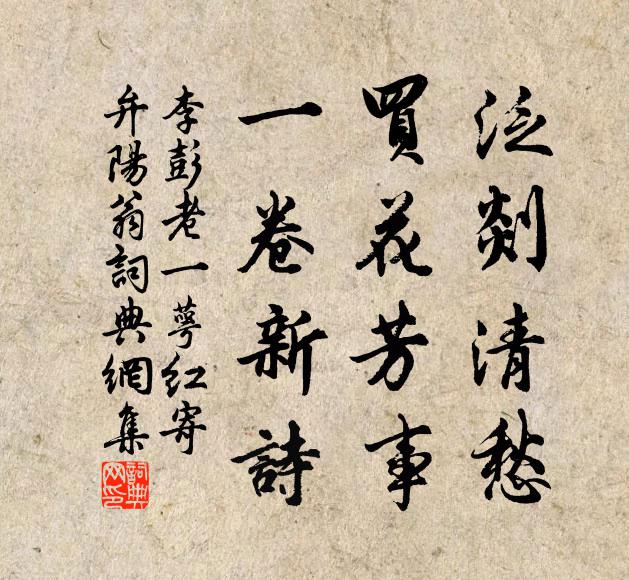 泛剡清愁
買花芳事
一卷新詩
李彭老一萼紅寄
弁陽翁詞典網集
詞典网印